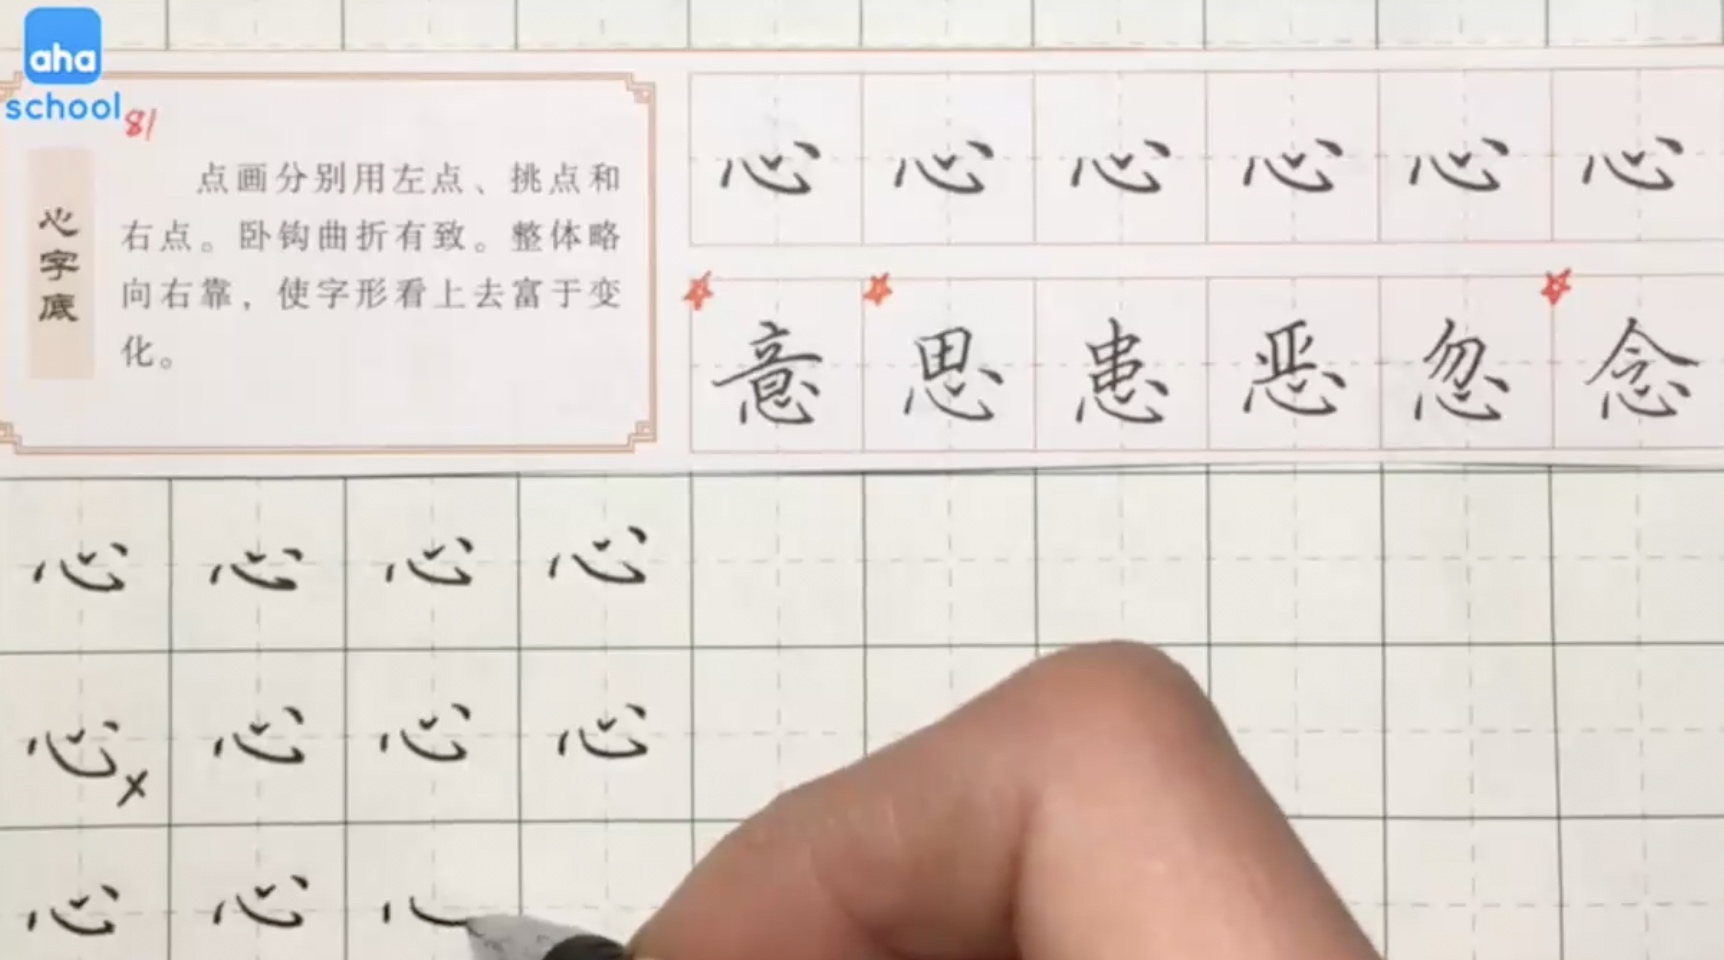 aha
school
81
心字底
点画分别用左点、挑点和
右点。卧钩曲折有致。整体略
向右靠，使字形看上去富于变
化。
心 心 心 心 心 心
意 思 患 恶 忽 念
心 心 心 心
心 × 心 心 心
心 心